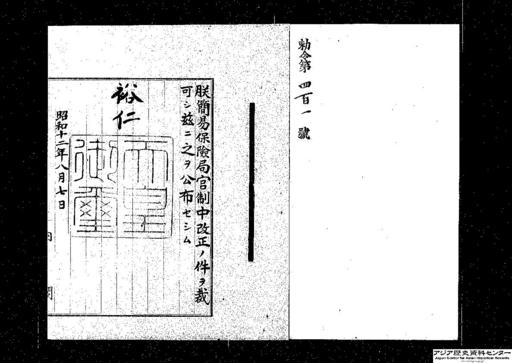 勅令第四百一號
朕簡易保險局官制中改正ノ件ヲ裁
可シ茲ニ之ヲ公布セシム
裕仁
天皇御璽
昭和十二年八月七日
アジア歴史資料センター
Japan Center for Asian Historical Records